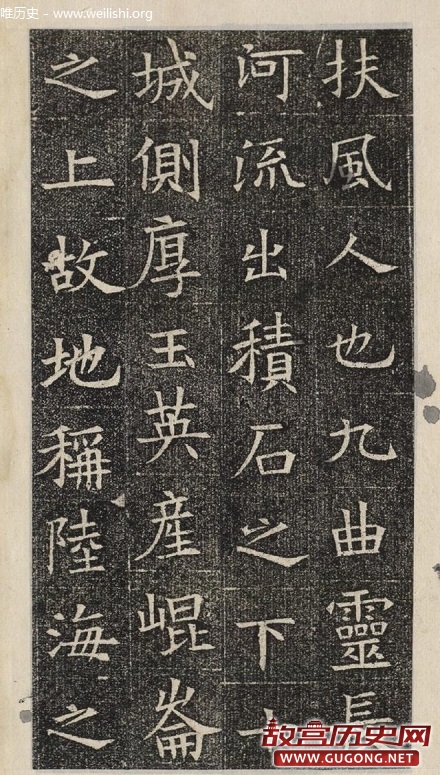 唯历史 - www.weilishi.org
扶風人也九曲靈長
河流出積石之下
城側厚玉英産崐崙
之上故地稱陸海之
故宫历史网
WWW.GUGONG.NET